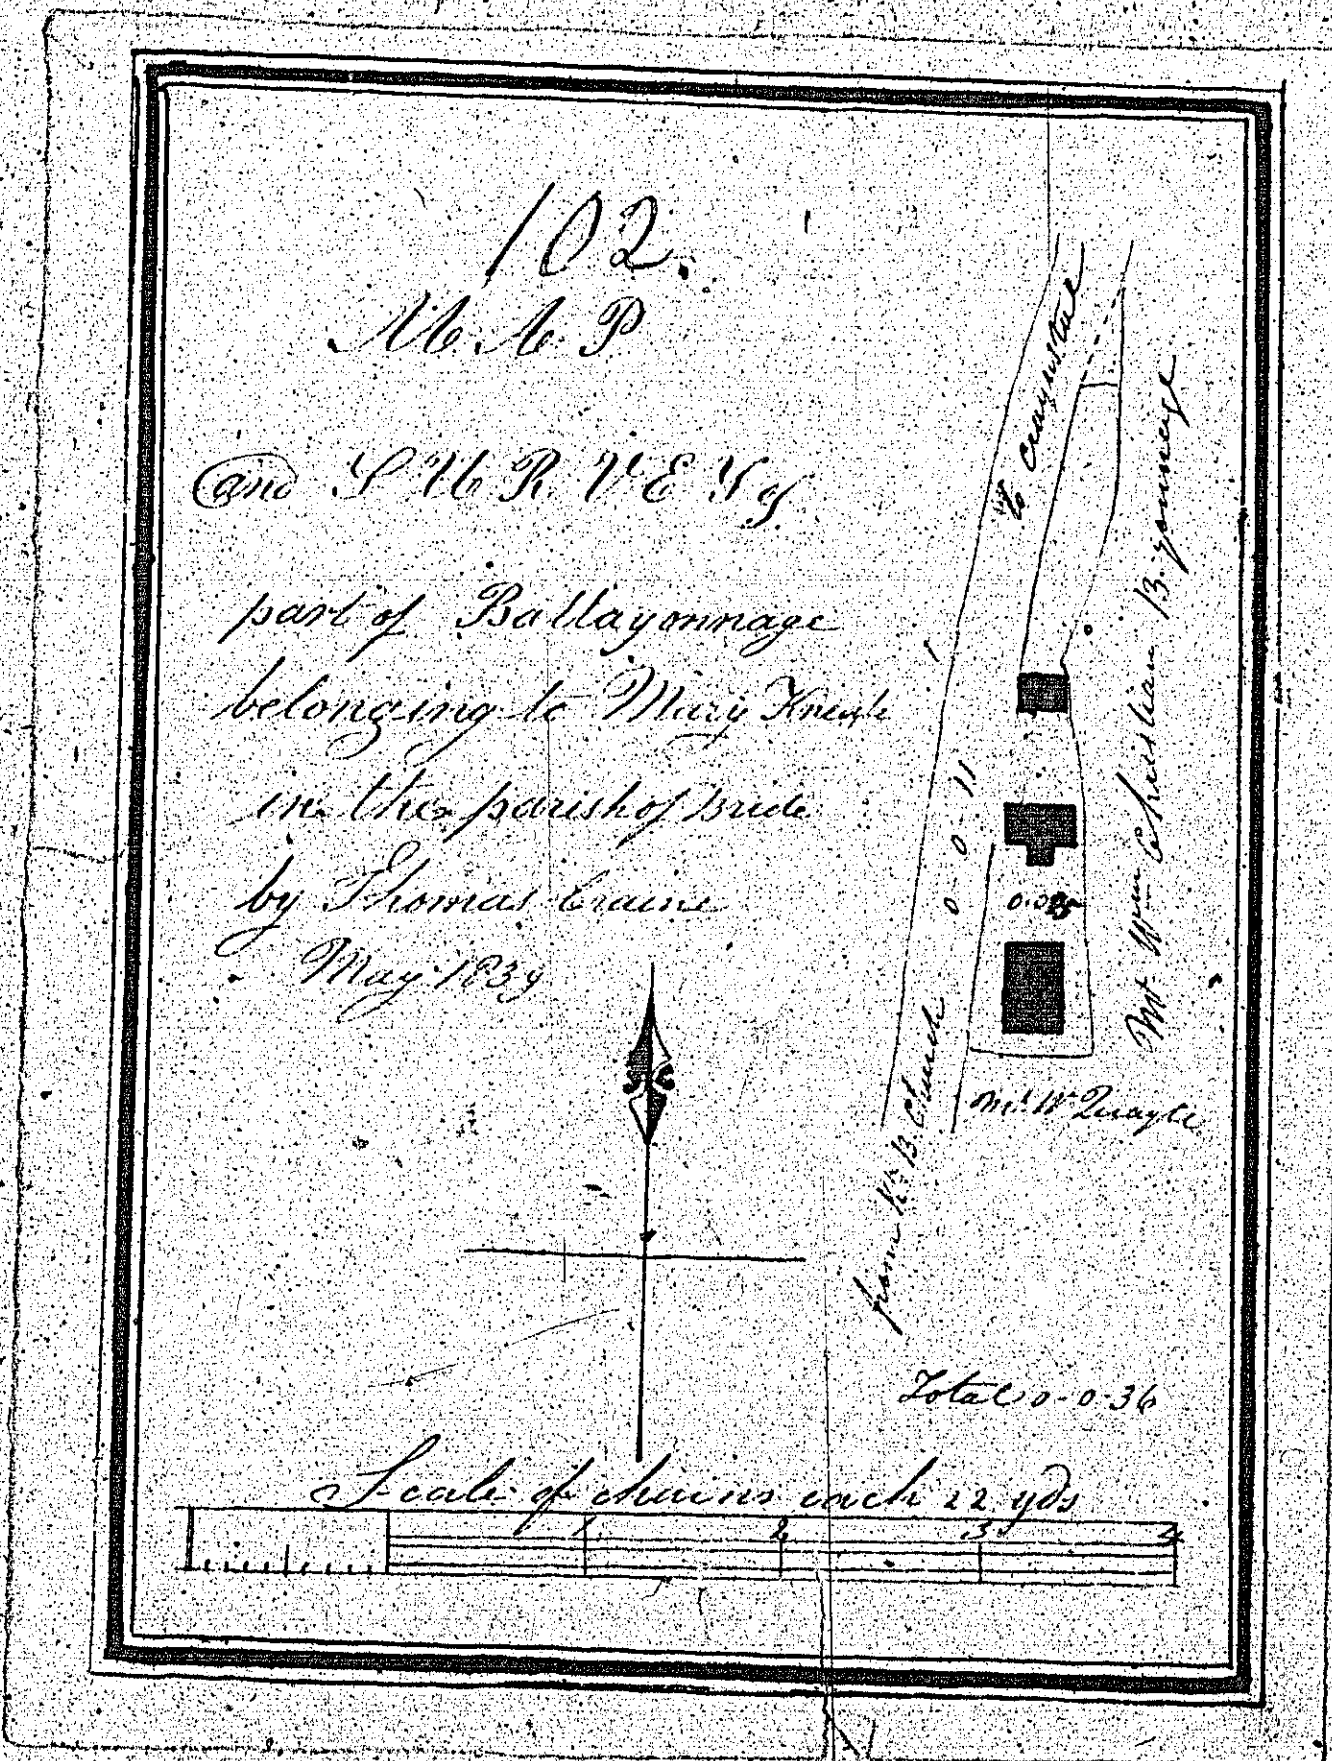 102.
MAP
and SURVEY of
part of Ballayonnage
belonging to Mary Kneale
in the parish of Bride
by Thomas Craine
May 1839
to
0-0-11
from Kk B. Church
Mr Wm Christian B. yonnege
Mr Wm Quayle
Total 0-0-36
Scale of chains each 22 yds
1 2 3 4